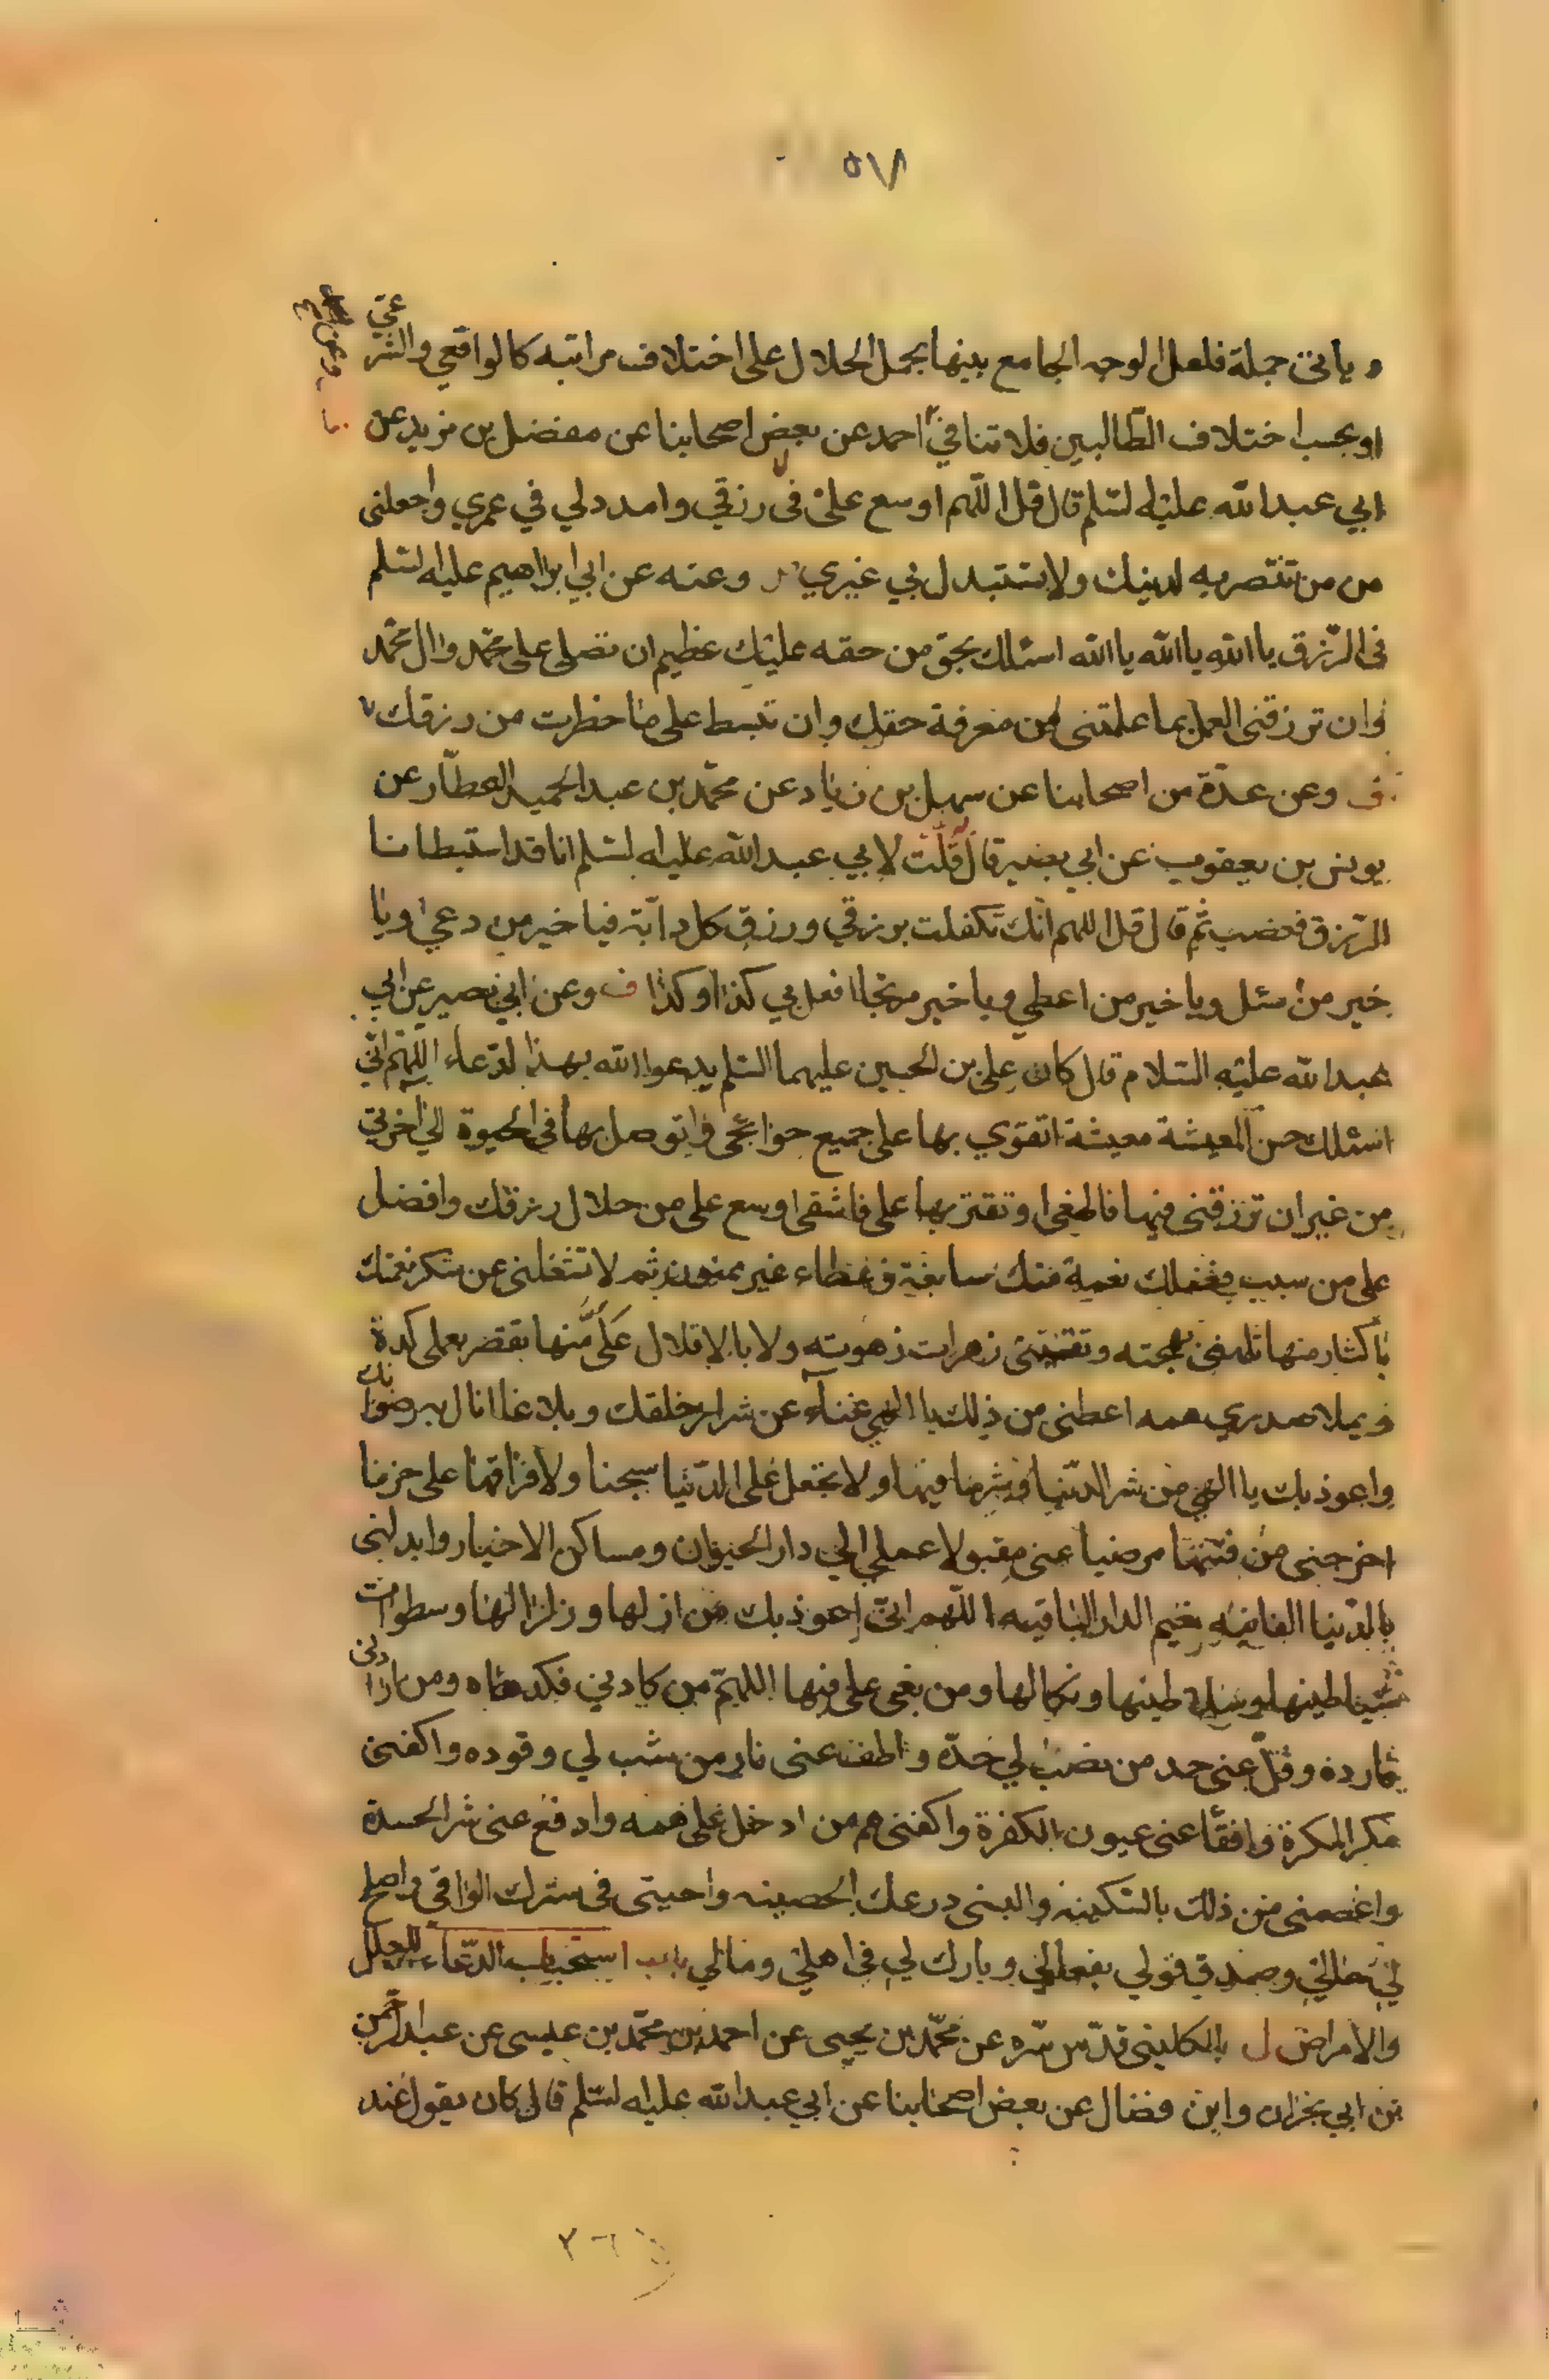 ٥٧
و يأتى جملة فلعل الوجه الجامع بينها بحمل الحلال على اختلاف مراتبه كالواقعي والشرعي
او بحسب اختلاف الطّالبين فلا تنافي احمد عن بعض اصحابنا عن مفضل بن مزيد عن
ابي عبد الله عليه السّلم قال قل اللّهم اوسع علىّ فى رزقي وامدد لي في عمري واجعلنى
من من تنتصر به لدينك ولا تستبدل بي غيري وعنه عن ابي ابراهيم عليه السّلم
فى الرّزق يا الله يا الله يا الله اسئلك بحق من حقه عليك عظيم ان تصلى على محمّد وال محمّد
وان ترزقنى العمل بما علمتنى من معرفة حقك وان تبسط على ما حظرت من رزقك
ف وعن عدّة من اصحابنا عن سهل بن زياد عن محمّد بن عبد الحميد العطّار عن
يونس بن يعقوب عن ابي بصير قال قلت لابي عبد الله عليه السّلم انا قد استبطانا
الرّزق فغضب ثم قال قل اللهم انّك تكفلت برزقي ورزق كل دابّة فيا خير من دعي ويا
خير من سئل ويا خير من اعطي ويا خير مرتجا افعل بي كذا وكذا ف وعن ابي بصير عن ابي
عبد الله عليه السّلام قال كان على بن الحسين عليهما السّلم يدعوا الله بهذا الدّعاء اللّهم انّي
اسئلك حسن المعيشة معيشة اتقوي بها على جميع حوائجى واتوصل بها فى الحيوة الي اخرتي
من غير ان ترزقنى فيها فاطغى او تقتر بها على فاشقى اوسع على من حلال رزقك وافضل
على من سيب فضلك نعمة منك سابغة وعطاء غير ممنون ثم لا تشغلنى عن شكر نعمتك
باكثار منها تلهنى بهجته وتفتننى زهرات زهوته ولا بالاقلال عَلَىَّ منها يقصر بعملى كدة
ويملا صدري همه اعطنى من ذلك يا الهي غناء عن شرار خلقك وبلاغا انال به رضوانك
واعوذ بك يا الهي من شر الدّنيا وشر ما فيها ولا تجعل على الدّنيا سجنا ولا فراقها على حزنا
اخرجنى من فتنتها مرضيا عنى مقبولا عملي الي دار الحيوان ومساكن الاخيار وابدلنى
بالدّنيا الفانيه نعيم الدار الباقيه اللّهم انّى اعوذ بك من ازلها وزلزالها وسطوات
شياطينها وسلاطينها ونكالها ومن بغى على فيها اللهمّ من كادني فكده ومن ارادنى
فارده وفلّ عنى حد من نصب لي حدّه واطف عنى نار من شب لي وقوده واكفنى
مكر المكرة وافقأ عنى عيون الكفرة واكفنى هم من ادخل على همه وادفع عنى شر الحسدة
واعصمنى من ذلك بالسّكينه والبسنى درعك الحصينه واحيتى فى سترك الواقى واصلح
لي حالي وصدق قولي بفعالي وبارك لي فى اهلي ومالي باب استحباب الدّعاء للعلل
والامراض ل الكلينى قدّس سّره عن محمّد بن يحيى عن احمد بن محمّد بن عيسى عن عبد الرّحمن
بن ابي نجران وابن فضال عن بعض اصحابنا عن ابي عبد الله عليه السّلم قال كان يقول عند